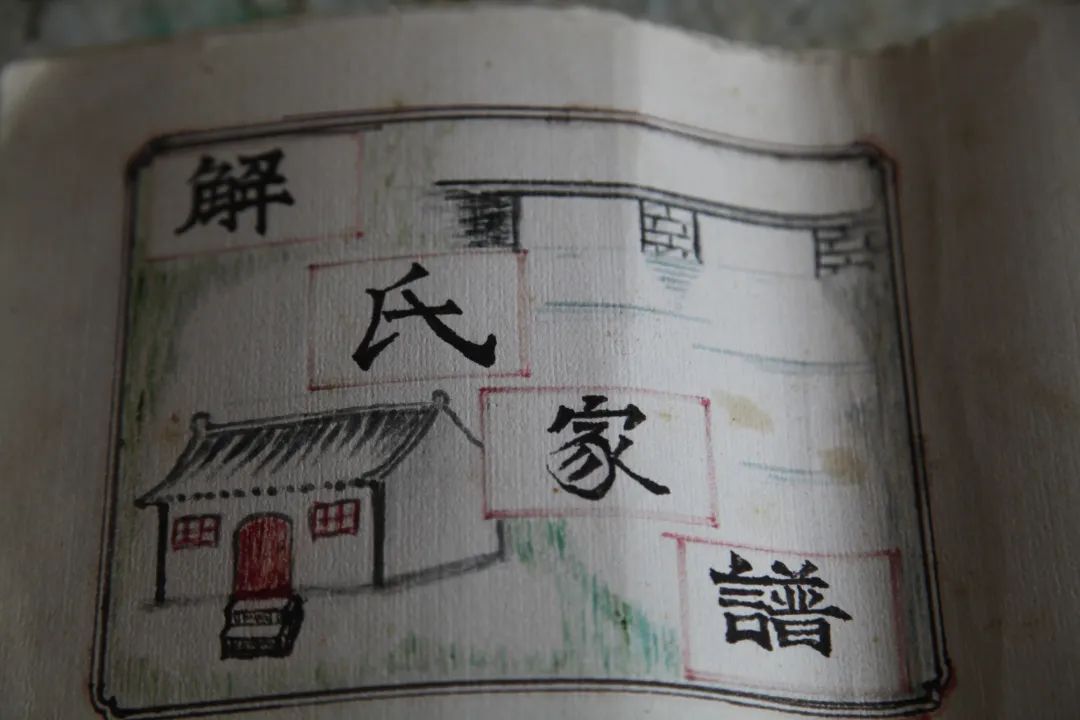 解氏家譜